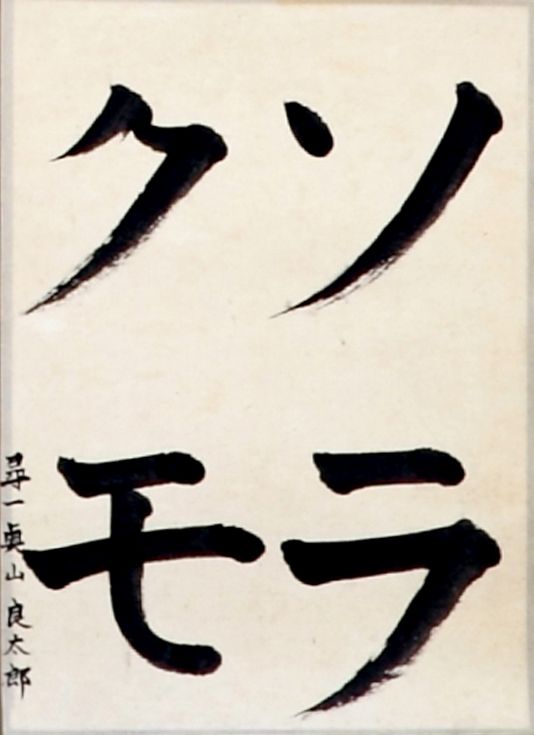 ソラ
クモ
尋一 奥山良太郎